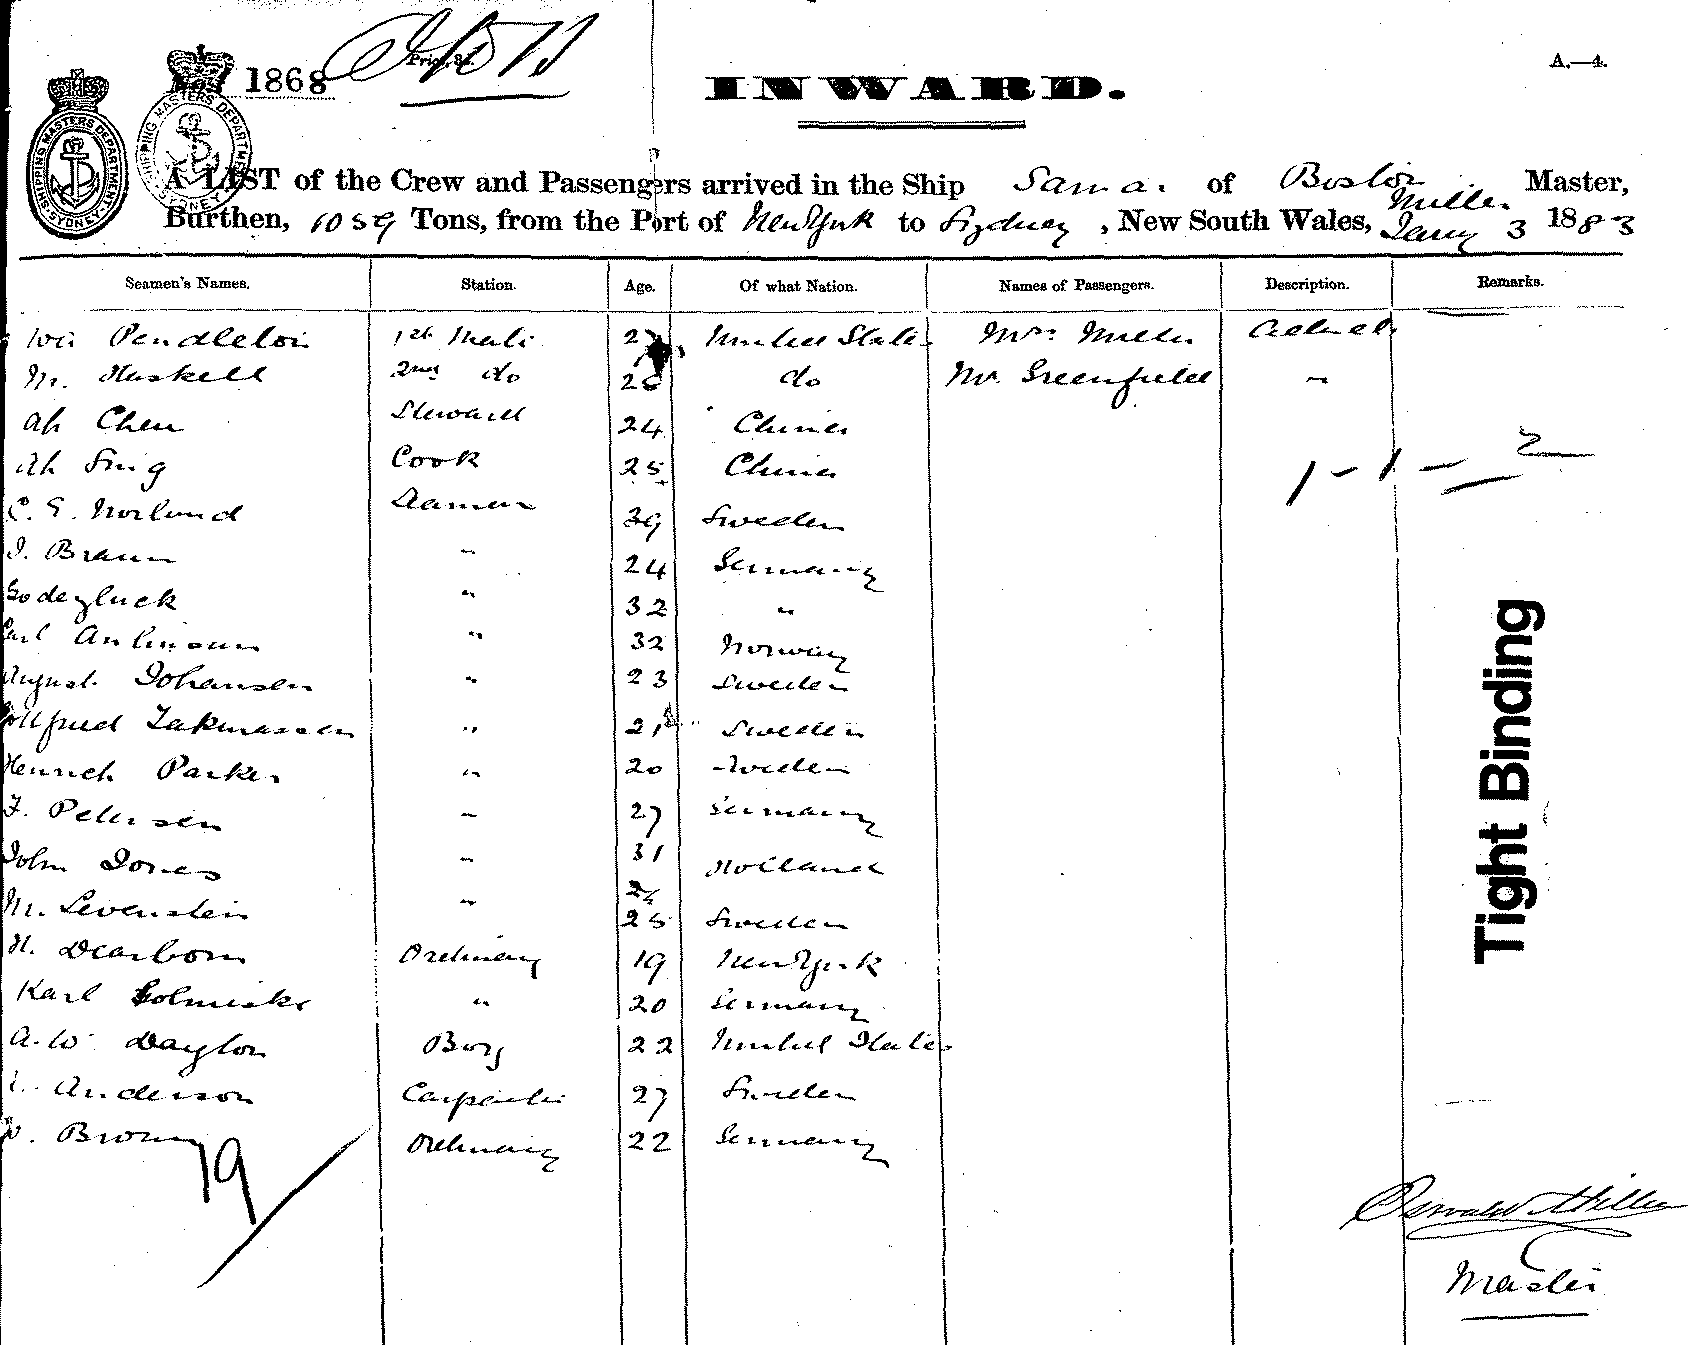 1868
Price 3d.
A.—4.
INWARD.
SHIPPING MASTERS DEPARTMENT SYDNEY
A LIST of the Crew and Passengers arrived in the Ship Samar of Boston Miller Master,
Burthen, 1059 Tons, from the Port of New York to Sydney, New South Wales, Jany 3 1883
Seamen's Names. Station. Age. Of what Nation. Names of Passengers. Description. Remarks.
Pendleton 1st Mate 27 United States Mrs Miller
M. Haskell 2nd do do Mr. Greenfield "
Ah Chen Steward 24 China
Ah Sing Cook 25 China 1 - 1 - 2
C. E. Norlund Seamen 39 Sweden
J. Braun " 24 Germany
" 32 "
Carl " 32 Norway
August Johansen " 23 Sweden
" 21 Sweden
Henrich Parker " 20 Sweden
F. Petersen " 27 Germany
John Jones " 31 Holland
M. Levenstein " 25 Sweden
H. Dearborn Ordinary 19 New York
Karl " 20 Germany
A. W. Dayton Boy 22 United States
Anderson Carpenter 27 Sweden
Brown Ordinary 22 Germany
19
Tight Binding
Oswald Miller
Master